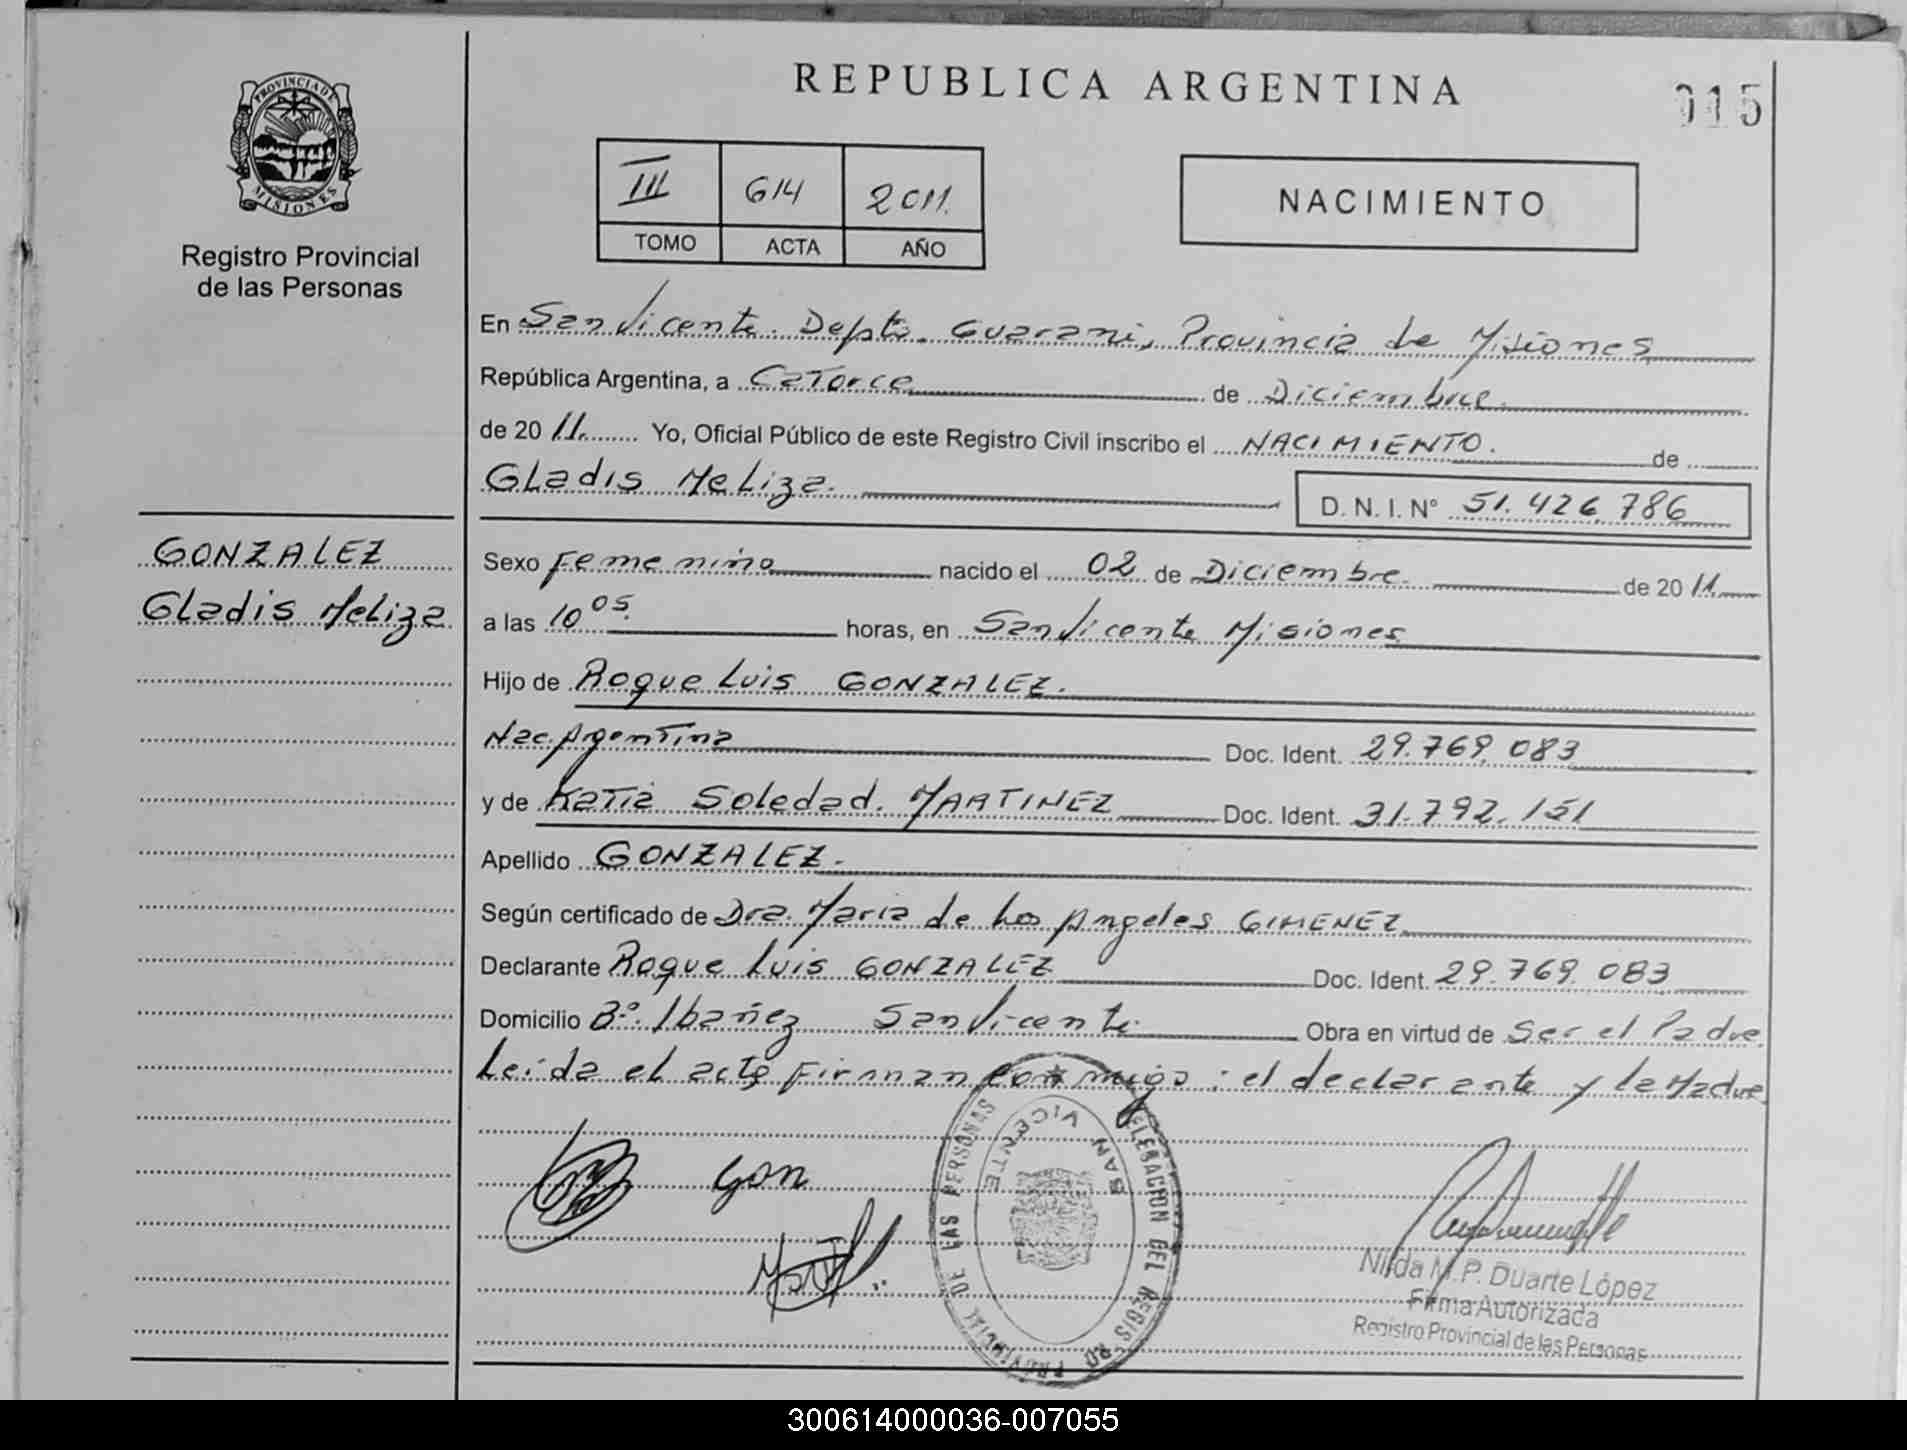 REPUBLICA ARGENTINA
015
PROVINCIA DE
MISIONES
Registro Provincial
de las Personas
III 614 2011.
TOMO ACTA AÑO
NACIMIENTO
En San Vicente. Depto. Guarani, Provincia de Misiones
República Argentina, a Catorce de Diciembre.
de 20 11. Yo, Oficial Público de este Registro Civil inscribo el NACIMIENTO. de
Gladis Meliza. D. N. I. Nº 51.426.786
GONZALEZ
Gladis Meliza
Sexo Femenino nacido el 02 de Diciembre. de 20 11.
a las 10 05. horas, en San Vicente Misiones
Hijo de Roque Luis GONZALEZ.
Nac. Argentina Doc. Ident. 29.769.083
y de Katia Soledad. MARTINEZ Doc. Ident. 31.792.151
Apellido GONZALEZ.
Según certificado de Dra. Maria de Los Angeles GIMENEZ
Declarante Roque Luis GONZALEZ Doc. Ident. 29.769.083
Domicilio Bº. Ibañez San Vicente Obra en virtud de Ser el Padre
Leida el acta Firman conmigo: el declarante y la Madre
Gon
DELEGACION DEL REGISTRO PROVINCIAL DE LAS PERSONAS
SAN VICENTE
Nilda M.P. Duarte López
Firma Autorizada
Registro Provincial de las Personas
300614000036-007055